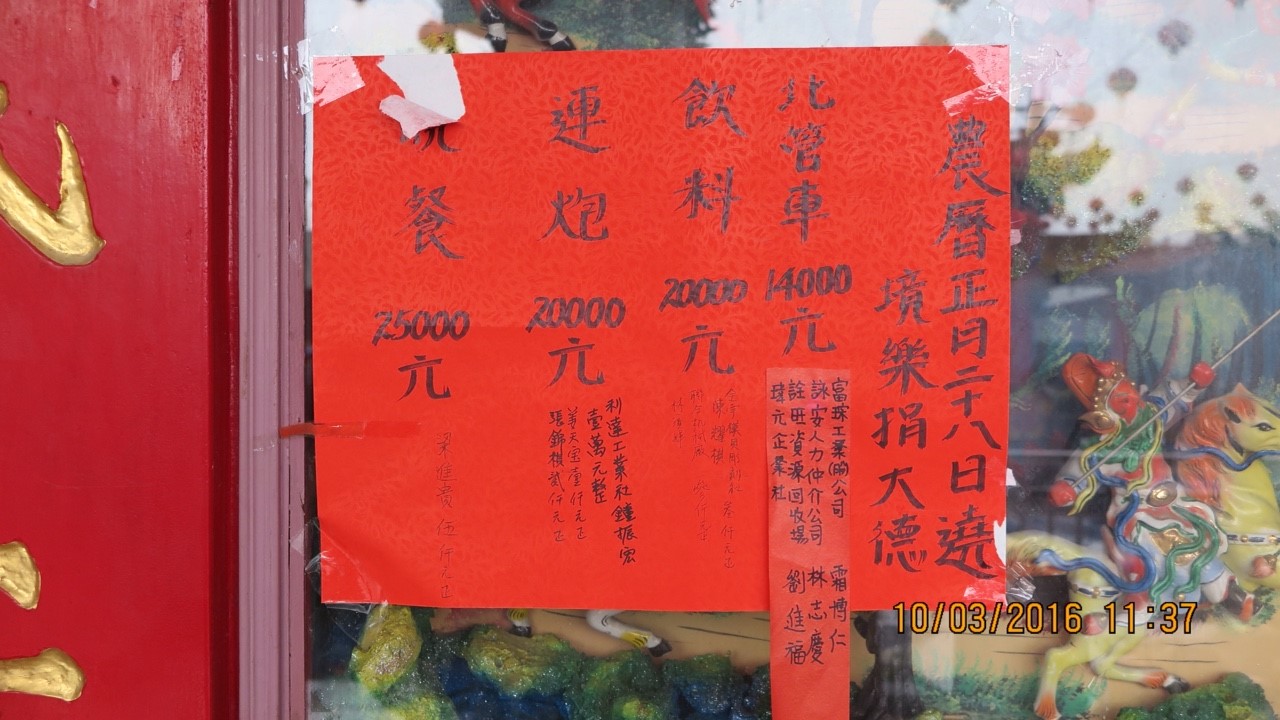 農曆正月二十八日遶
境樂捐大德
北管車 14000元
富琮工業(股)公司 霜博仁
詠安人力仲介公司 林志慶
詮旺資源回收場 劉進福
瑋元企業社
飲料 20000元
陳耀棋
運炮 20000元
利達工業社鍾振宏
壹萬元整
姜天寶壹仟元正
張錦棋貳仟元正
晚餐 25000元
梁進貴 伍仟元正
10/03/2016 11:37